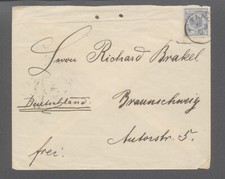 Herrn Richard Brakel
Deutschland.
Braunschweig
Autorstr. 5.
frei.